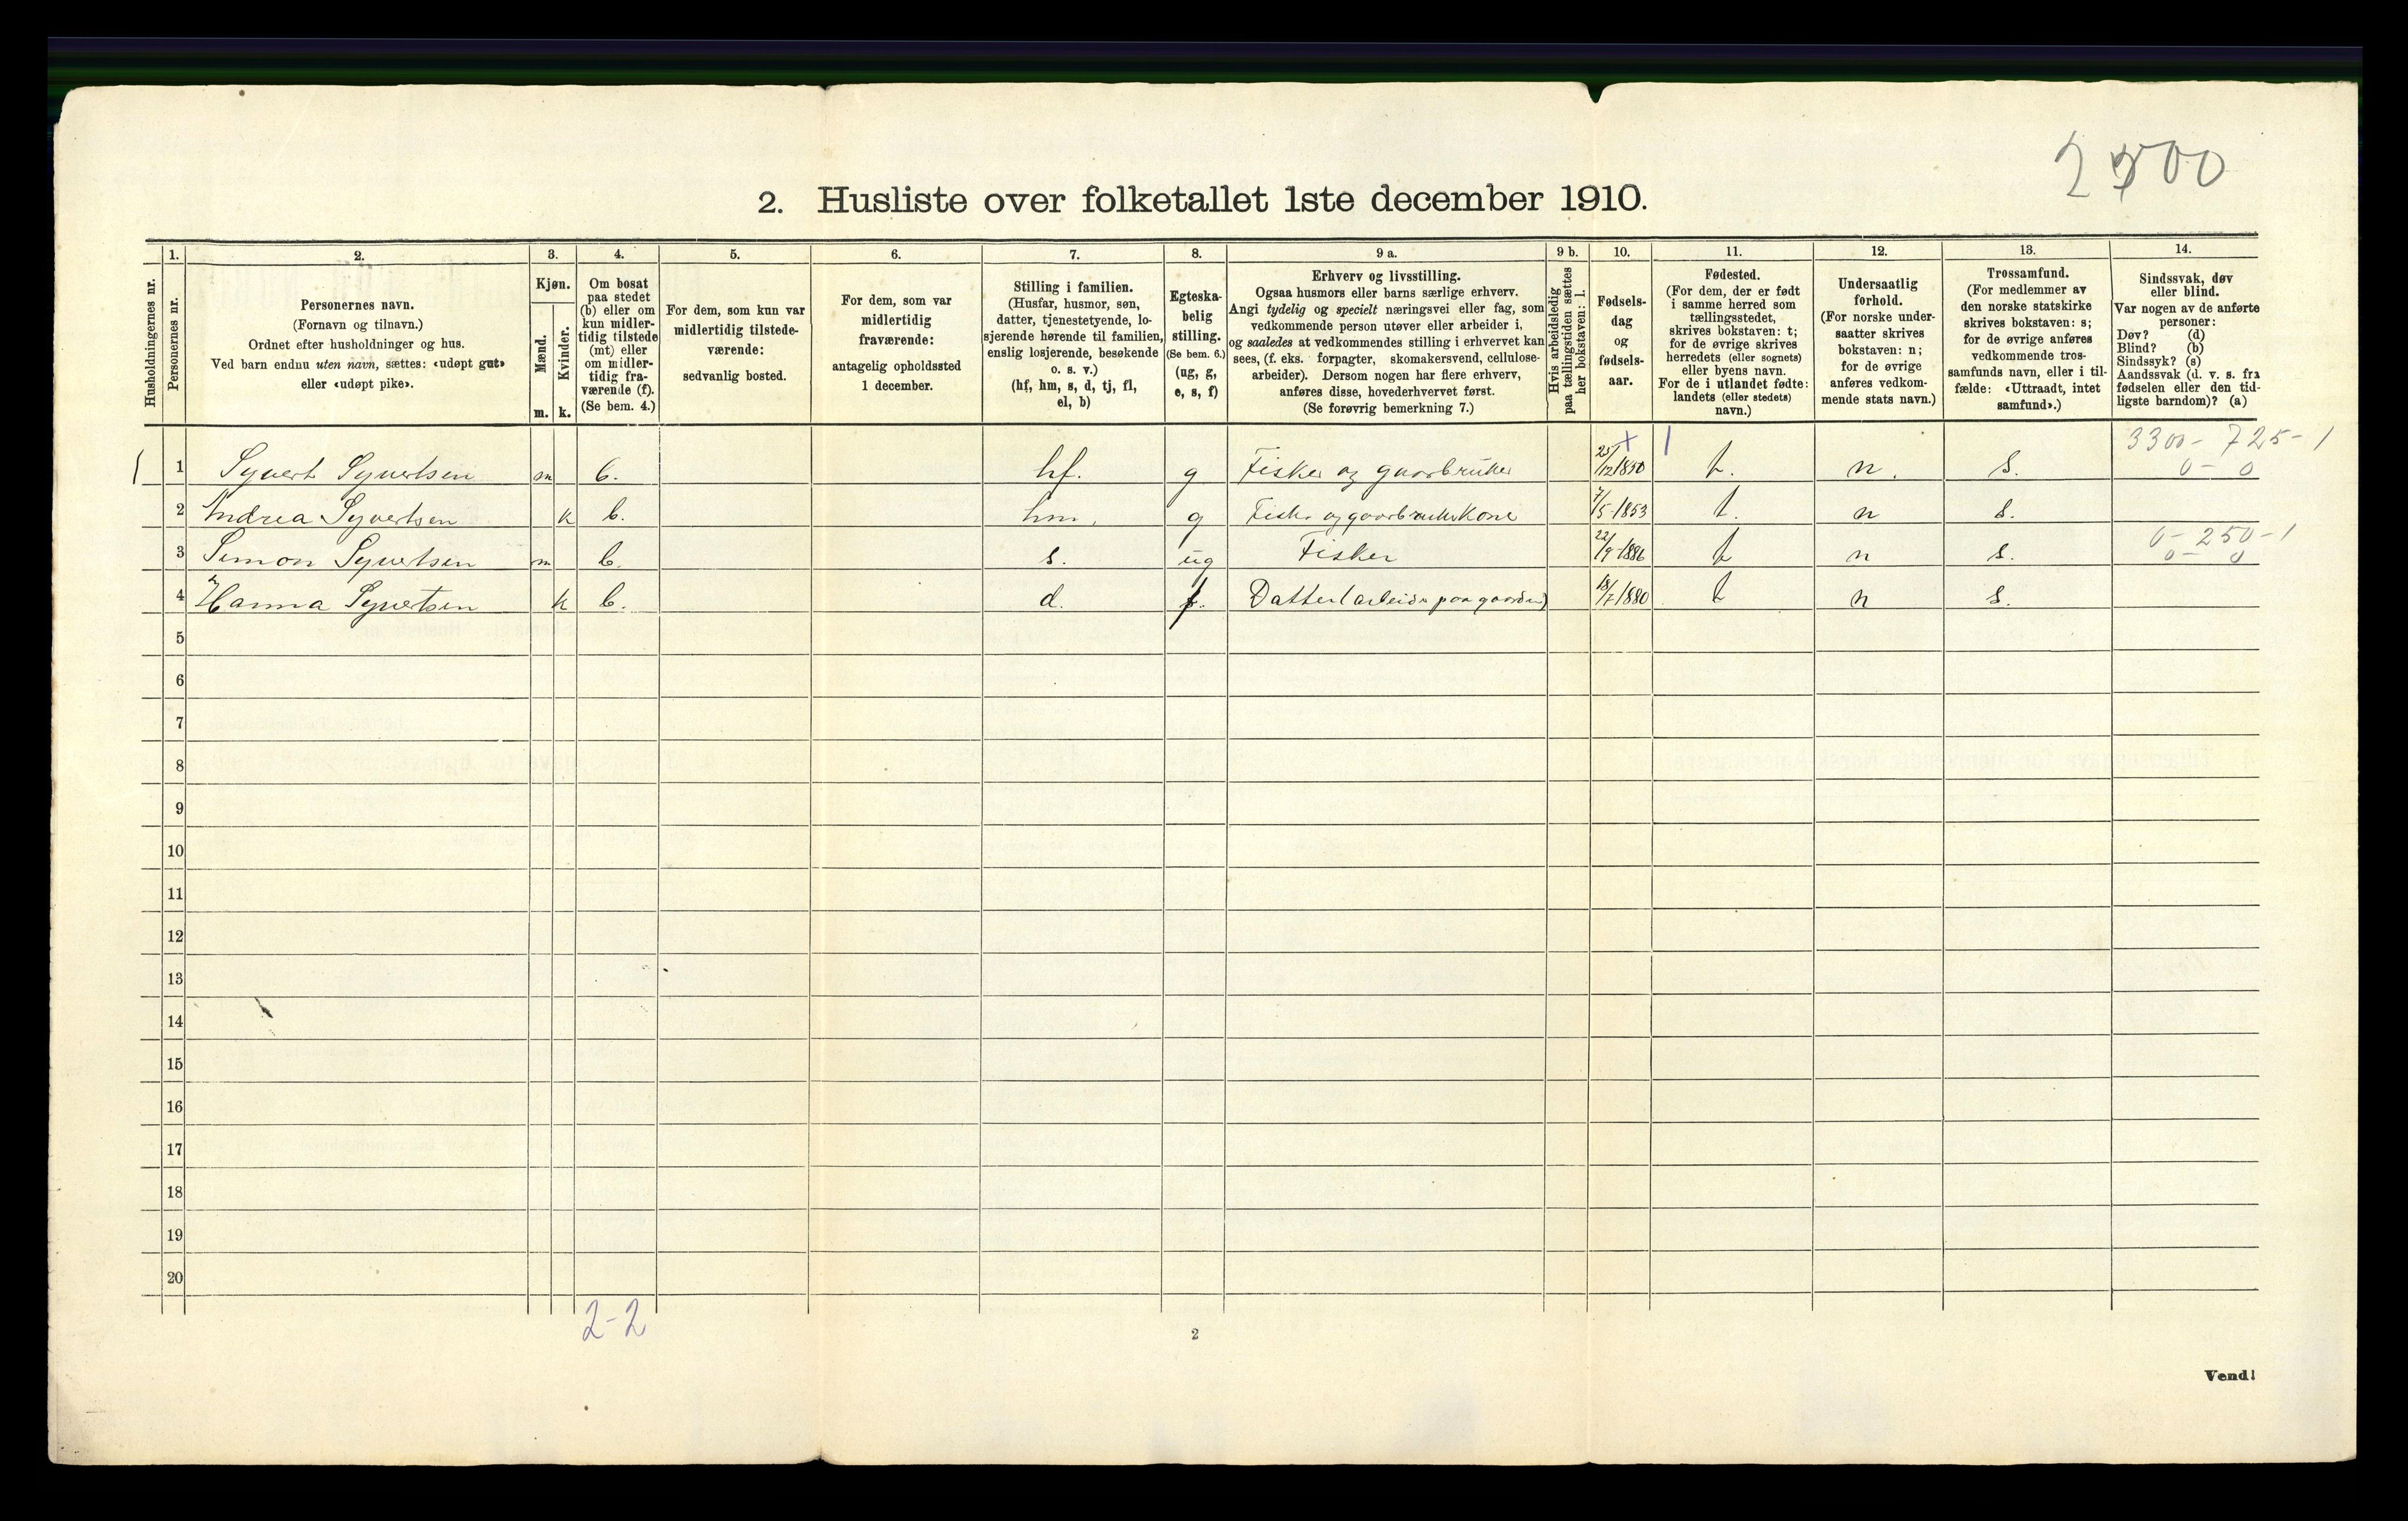 2500
2. Husliste over folketallet 1ste december 1910.
Husholdningernes nr.
1.
Personernes nr.
2.
Personernes navn.
(Fornavn og tilnavn.)
Ordnet efter husholdninger og hus.
Ved barn endnu uten navn, sættes: «udøpt gut»
eller «udøpt pike».
3.
Kjøn.
Mænd.
Kvinder.
m. k.
4.
Om bosat
paa stedet
(b) eller om
kun midler-
tidig tilstede
(mt) eller
om midler-
tidig fra-
værende (f).
(Se bem. 4.)
5.
For dem, som kun var
midlertidig tilstede-
værende:
sedvanlig bosted.
6.
For dem, som var
midlertidig
fraværende:
antagelig opholdssted
1 december.
7.
Stilling i familien.
(Husfar, husmor, søn,
datter, tjenestetyende, lo-
sjerende hørende til familien,
enslig losjerende, besøkende
o. s. v.)
(hf, hm, s, d, tj, fl,
el, b)
8.
Egteska-
belig
stilling.
(Se bem. 6.)
(ug, g,
e, s, f)
9 a.
Erhverv og livsstilling.
Ogsaa husmors eller barns særlige erhverv.
Angi tydelig og specielt næringsvei eller fag, som
vedkommende person utøver eller arbeider i,
og saaledes at vedkommendes stilling i erhvervet kan
sees, (f. eks. forpagter, skomakersvend, cellulose-
arbeider). Dersom nogen har flere erhverv,
anføres disse, hovederhvervet først.
(Se forøvrig bemerkning 7.)
9 b.
Hvis arbeidsledig
paa tællingstiden sættes
her bokstaven: l.
10.
Fødsels-
dag
og
fødsels-
aar.
11.
Fødested.
(For dem, der er født
i samme herred som
tællingsstedet,
skrives bokstaven: t;
for de øvrige skrives
herredets (eller sognets)
eller byens navn.
For de i utlandet fødte:
landets (eller stedets)
navn.)
12.
Undersaatlig
forhold.
(For norske under-
saatter skrives
bokstaven: n;
for de øvrige
anføres vedkom-
mende stats navn.)
13.
Trossamfund.
(For medlemmer av
den norske statskirke
skrives bokstaven: s;
for de øvrige anføres
vedkommende tros-
samfunds navn, eller i til-
fælde: «Uttraadt, intet
samfund».)
14.
Sindssvak, døv
eller blind.
Var nogen av de anførte
personer:
Døv? (d)
Blind? (b)
Sindssyk? (s)
Aandssvak (d. v. s. fra
fødselen eller den tid-
ligste barndom)? (a)
+ 1 3300- 725-1
1 1 Syvert Syvertsen m b. hf. g Fisker og gaarbruker 25/12 1850 t. n. s. 0- 0
2 Andrea Syvertsen k b. hm. g Fisker og gaarbrukerkone 7/5-1853 t. n s.
0-250-1
3 Simon Syvertsen m b. s. ug Fisker 22/9-1886 t n s. 0- 0
4 Hanna Syvertsen k b. d. f. Datter (arbeider paa gaarden) 18/7 1880 t n s.
5
6
7
8
9
10
11
12
13
14
15
16
17
18
19
20
2-2
2
Vend!